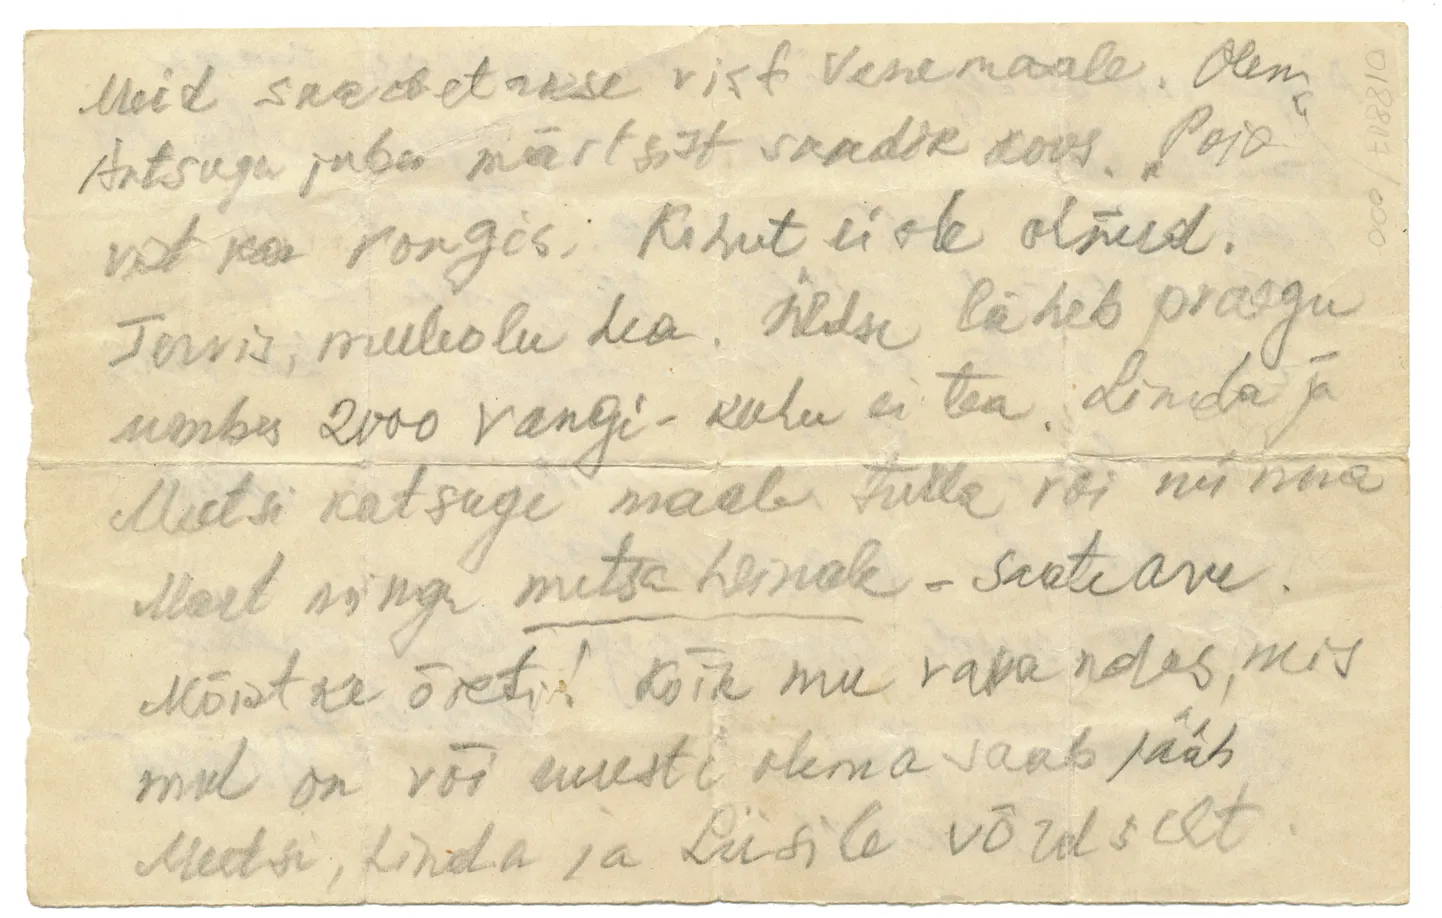 Meid saadetakse vist Venemaale. Olen
Antsuga juba märtsist saadik koos. "Poja
vat ka rongis. Kohut ei ole olnud.
Tervis, meeleolu hea. Üldse läheb praegu
umbes 2000 vangi - kuhu ei tea. Linda ja
Meetsi katsugu maale tulla või niinna
Mart mingu metsa heinale - saate aru.
Mõistke õieti! Kõik mu varandus, mis
mul on või uuesti olema saab jääb
Meetsi, Linda ja Liisile võrdselt.
000/TV8810